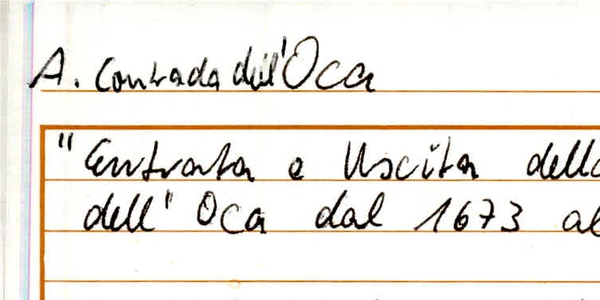 A. Contrada dell'Oca
"Entrata e Uscita della
dell' Oca dal 1673 al